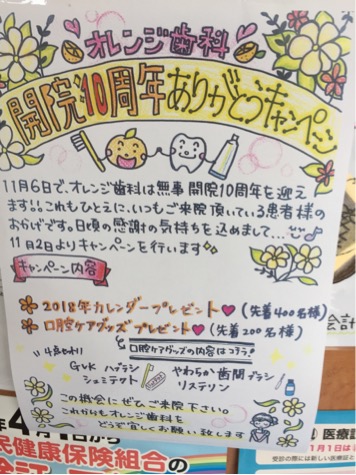 オレンジ歯科
開院10周年ありがとうキャンペーン
11月6日で、オレンジ歯科は無事開院10周年を迎え
ます!!これもひとえに、いつもご来院頂いている患者様の
おかげです。日頃の感謝の気持ちを込めまして…
11月2日よりキャンペーンを行います
キャンペーン内容
2018年カレンダープレゼント♥(先着400名様)
口腔ケアグッズプレゼント♥(先着200名様)
口腔ケアグッズの内容はコチラ!
GVK ハブラシ やわらか歯間ブラシ
シュミテクト リステリン
この機会にぜひご来院下さい。
これからもオレンジ歯科を
どうぞ宜しくお願い致します
会計
民健康保険組合の
医療
1月1日